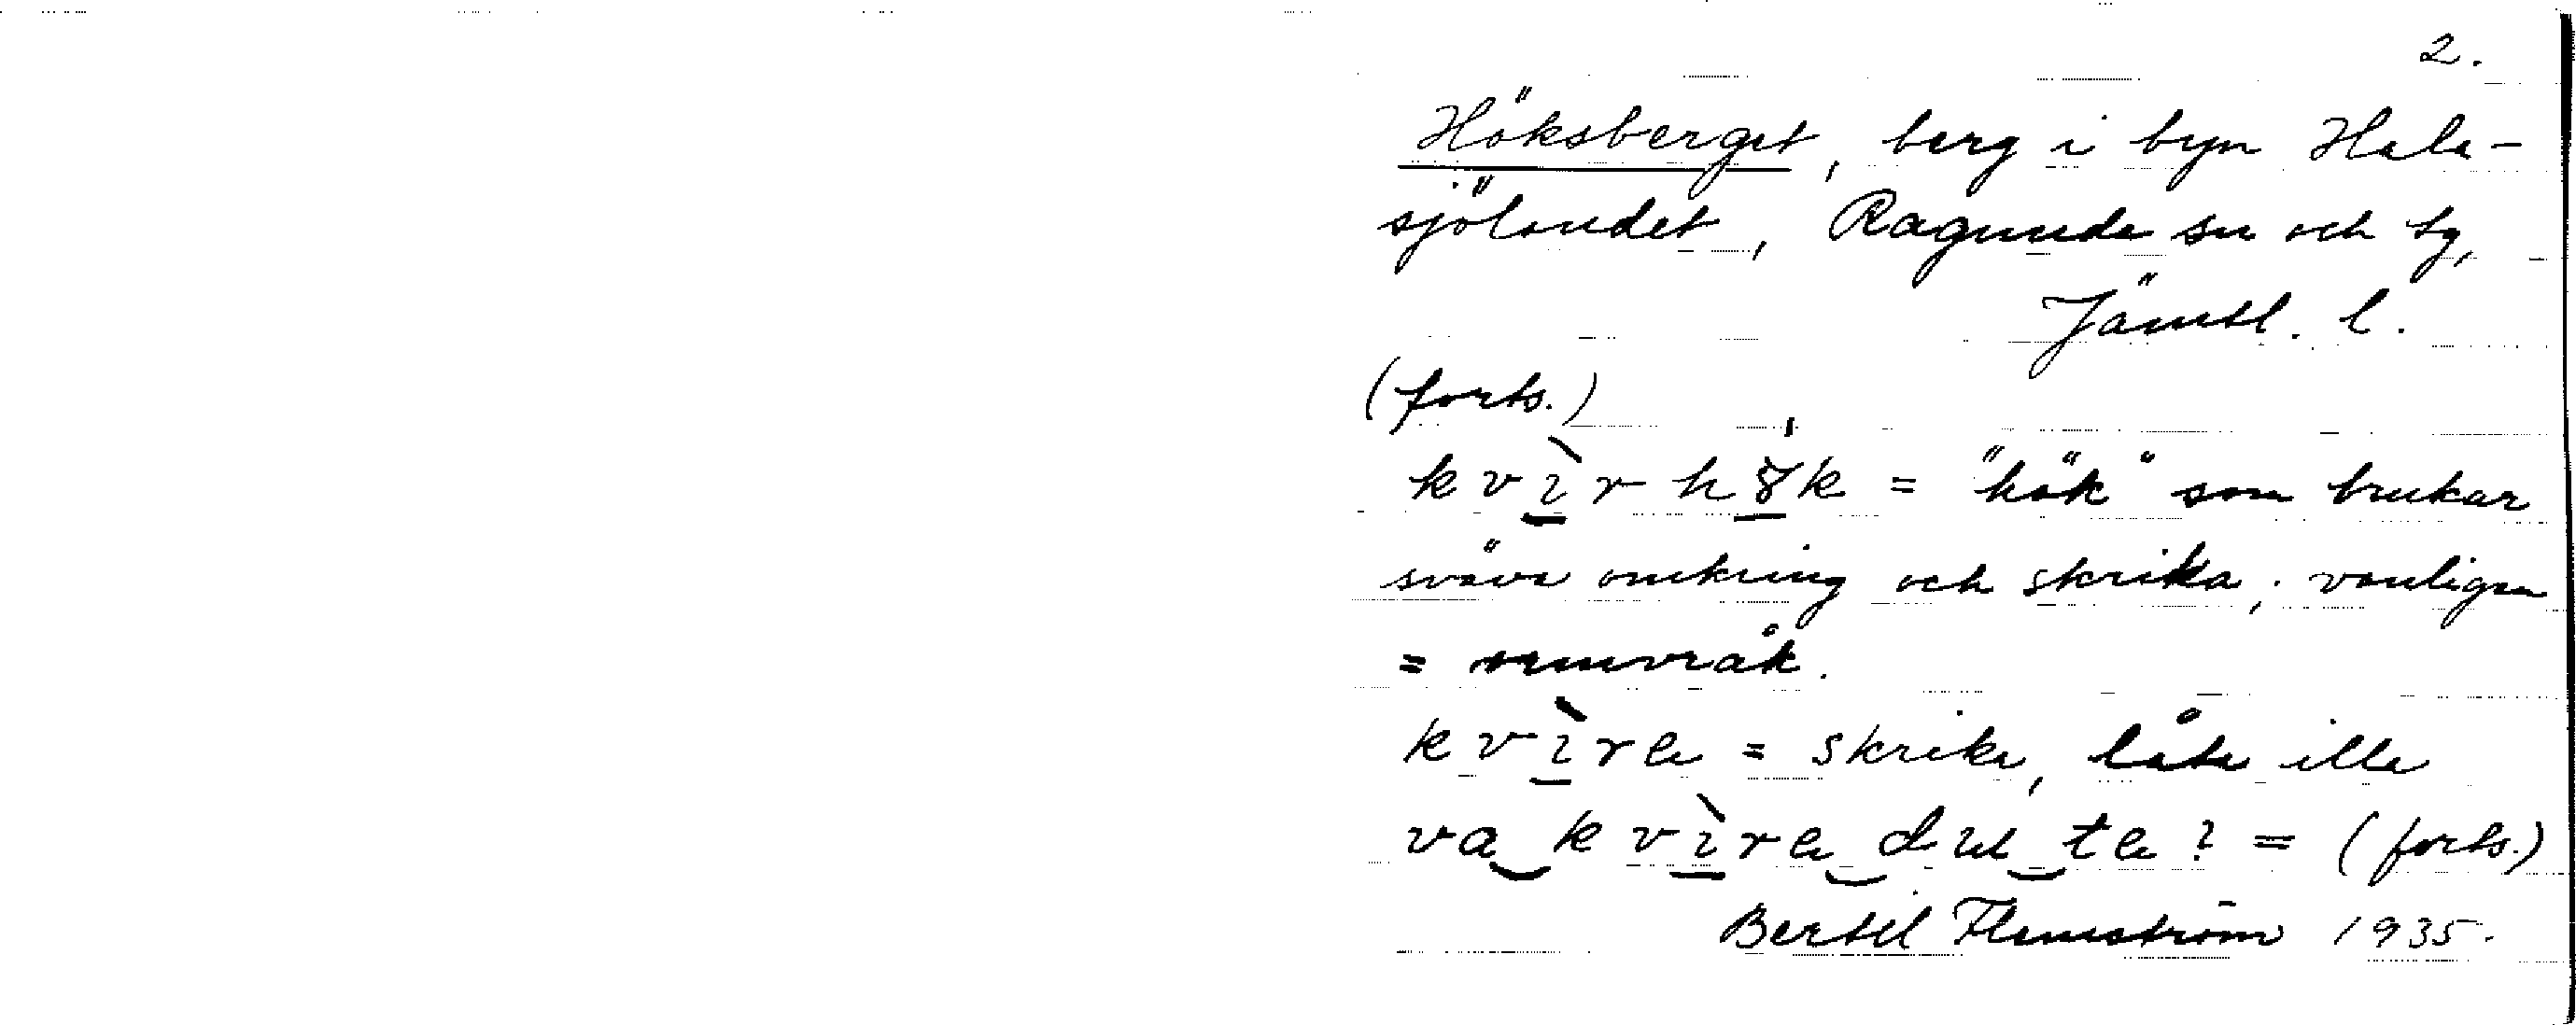 2.
Höksberget, berg i byn Hala-
sjölandet, Ragunda sn och tg,
Jämtl. l.
(forts.)
kvìrh8̆k = "hök" som brukar
sväva omkring och skrika; vanligen
= ormvråk.
kvìra = skrika, låta illa
va‿kvìra‿du‿ta? = (forts.)
Bertil Flemström 1935.